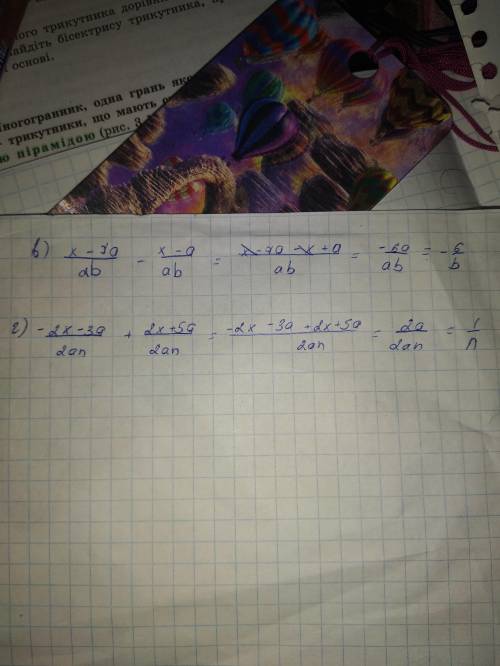 ного трикутника дорівн
найдіть бісектрису трикутника,
основі.
многогранник, одна грань яко
трикутники, що мають
ю пірамідою (рис. 3
в) \frac{x-7a}{ab} - \frac{x-a}{ab} = \frac{x-7a-x+a}{ab} = \frac{-6a}{ab} = -\frac{6}{b}
г) \frac{-2x-3a}{2an} + \frac{2x+5a}{2an} = \frac{-2x-3a+2x+5a}{2an} = \frac{2a}{2an} = \frac{1}{n}